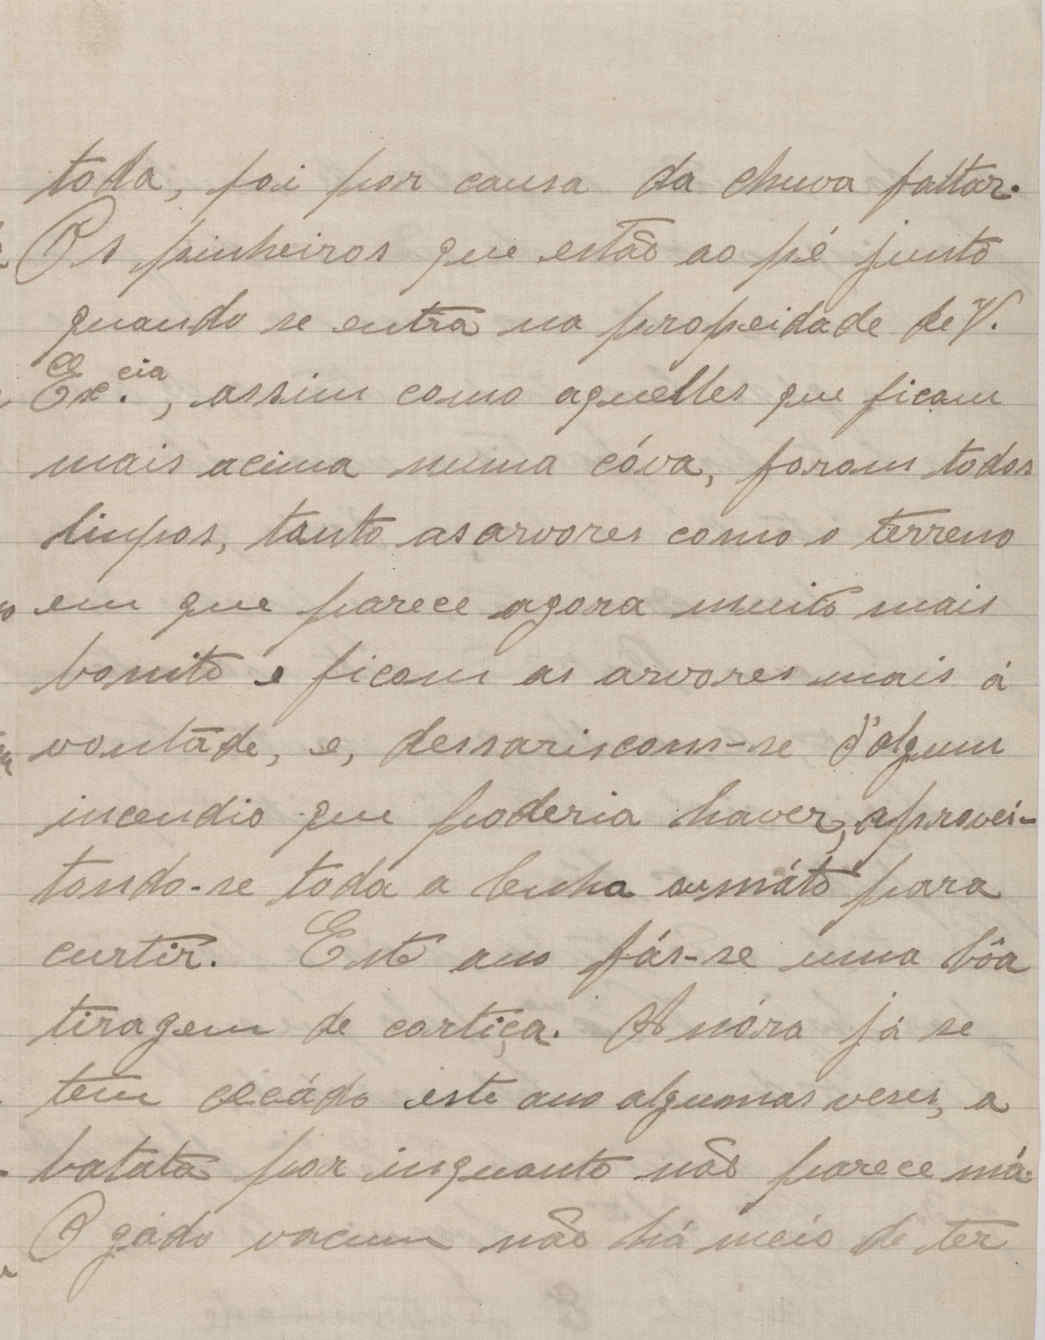 toda, foi por causa da chuva faltar.
Os pinheiros que estão ao pé junto
quando se entra na propeidade de V.
Ex.cia, assim como aquelles que ficam
mais acima numa cóva, foram todos
limpos, tanto as arvores como o terreno
em que parece agora muito mais
bonito e ficam as arvores mais á
vontade, e, dessariscam-se d'algum
incendio que poderia haver, aprovei-
tando-se toda a lenha máto para
curtir. Este ano fás-se uma bôa
tiragem de cortiça. A nóra já se
tem cecádo este ano algumas veses, a
batata por inquanto não parece má.
O gádo vacum não há meio de ter